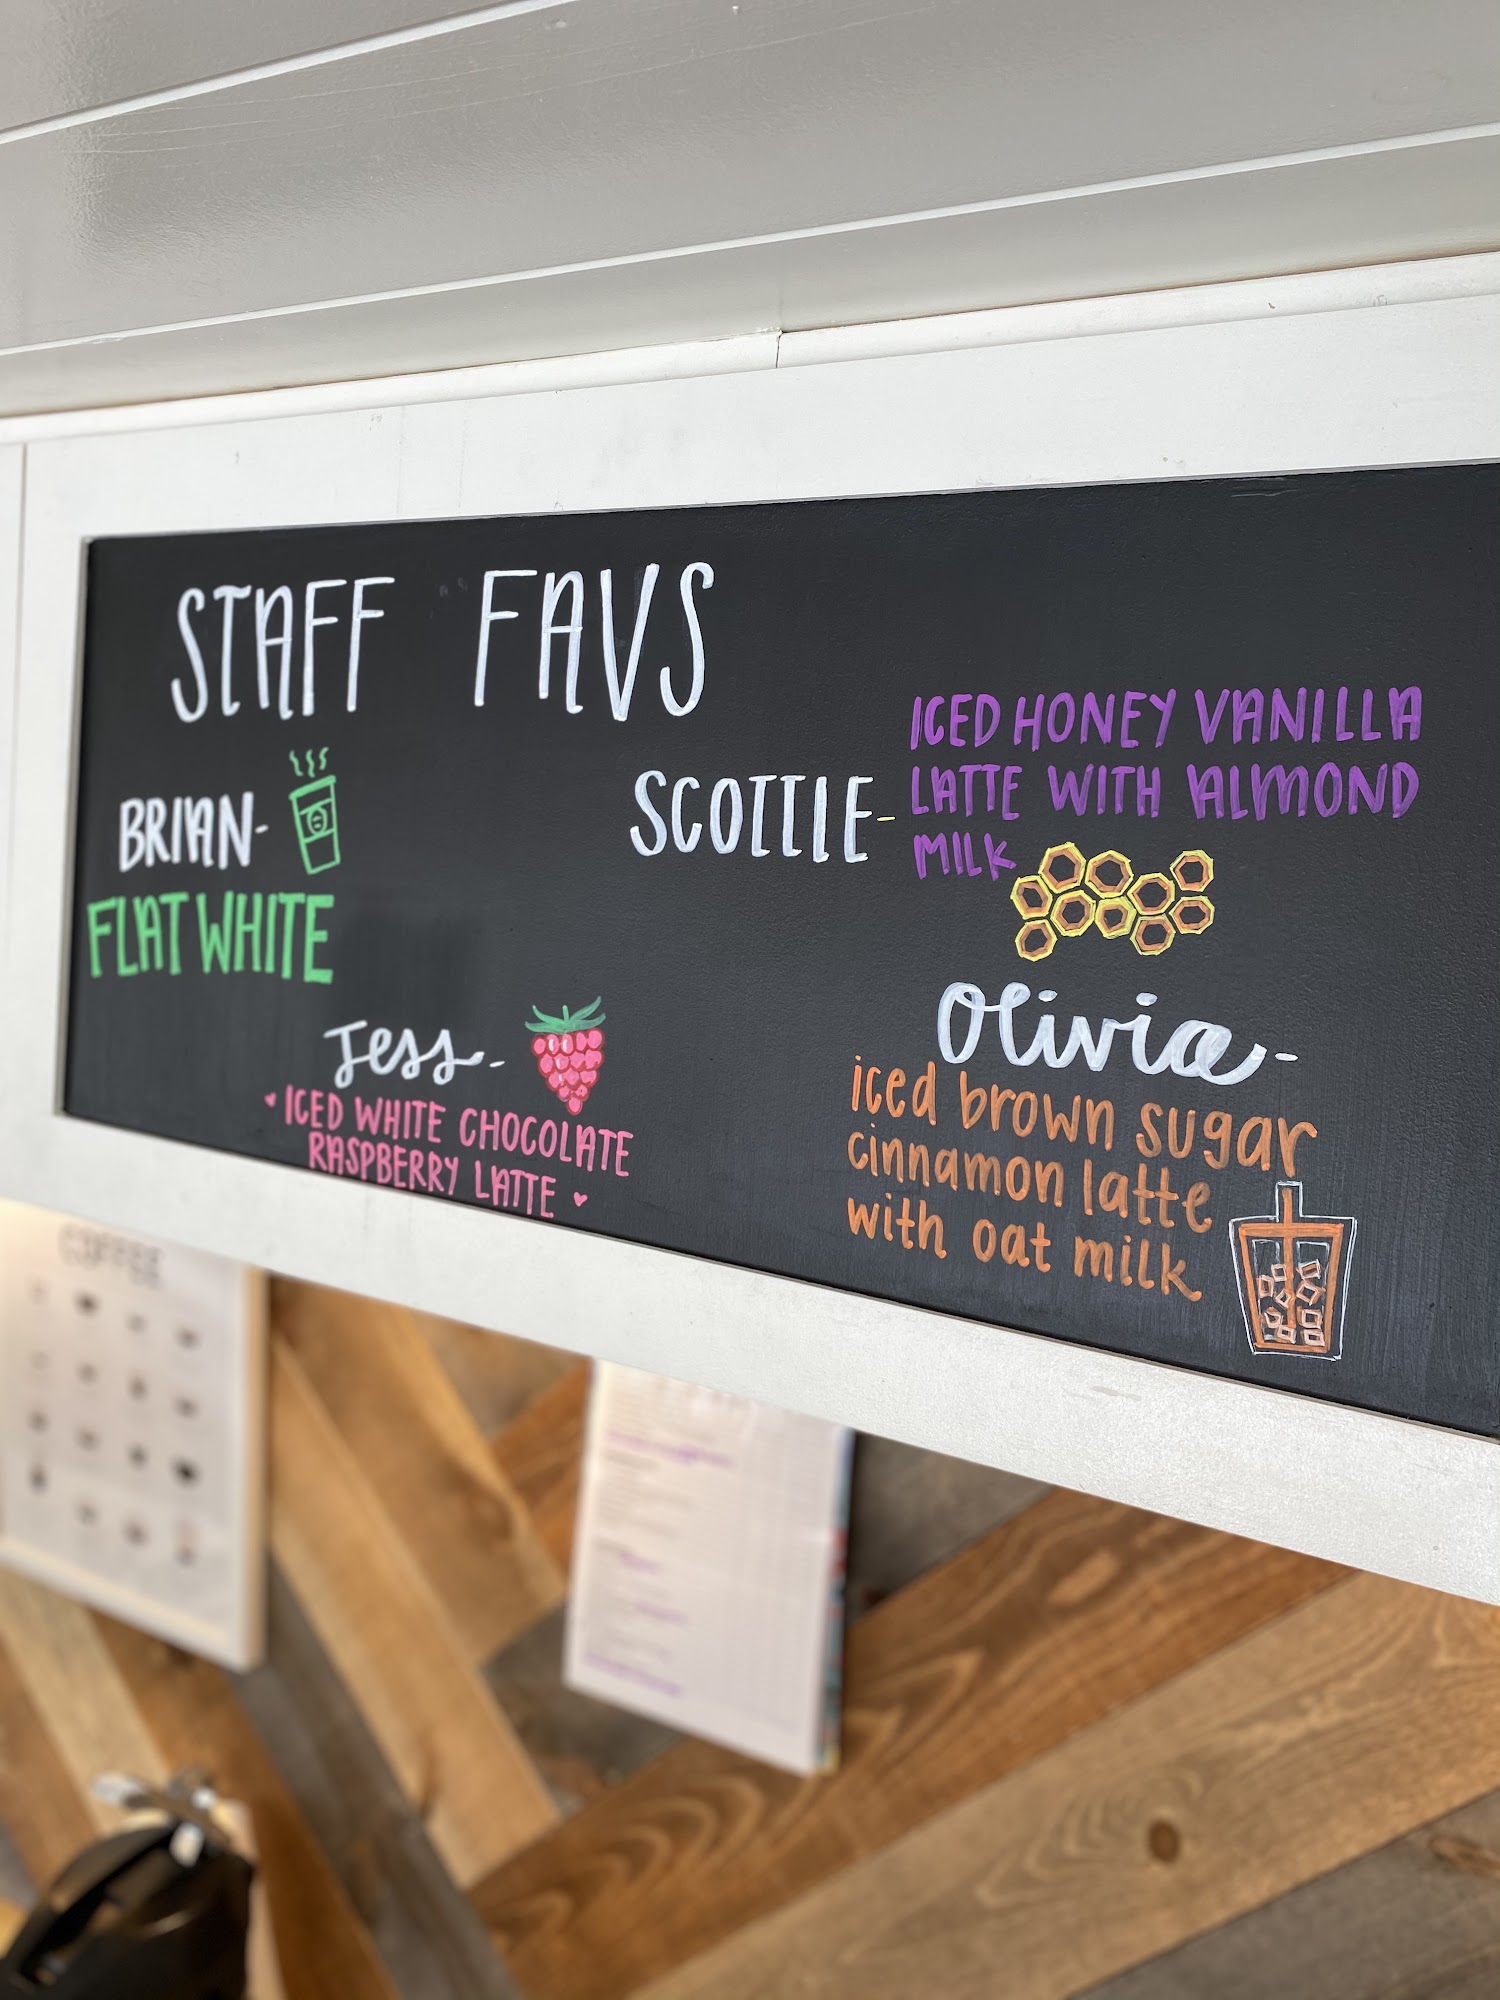 STAFF FAVS
BRIAN-
FLAT WHITE
SCOTTIE-
ICED HONEY VANILLA
LATTE WITH ALMOND
MILK
Jess-
ICED WHITE CHOCOLATE
RASPBERRY LATTE
Olivia-
iced brown sugar
cinnamon latte
with oat milk
COFFEE